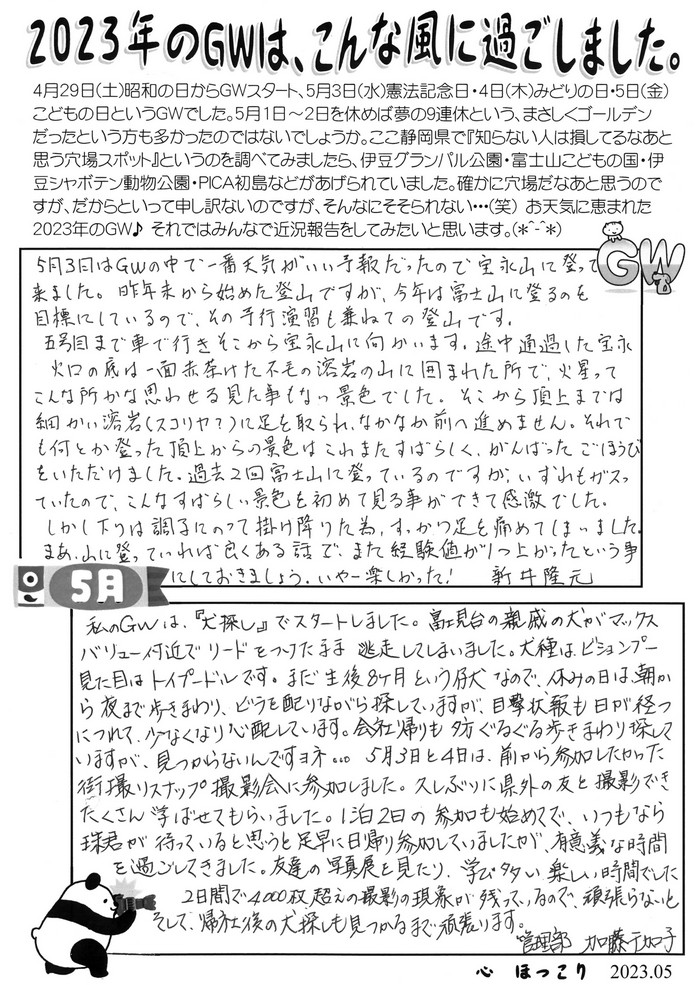 2023年のGWは、こんな風に過ごしました。
4月29日(土)昭和の日からGWスタート、5月3日(水)憲法記念日・4日(木)みどりの日・5日(金)
こどもの日というGWでした。5月1日~2日を休めば夢の9連休という、まさしくゴールデン
だったという方も多かったのではないでしょうか。ここ静岡県で『知らない人は損してるなあと
思う穴場スポット』というのを調べてみましたら、伊豆グランパル公園・富士山こどもの国・伊
豆シャボテン動物公園・PICA初島などがあげられていました。確かに穴場だなあと思うので
すが、だからといって申し訳ないのですが、そんなにそそられない・・・(笑) お天気に恵まれた
2023年のGW♪ それではみんなで近況報告をしてみたいと思います。(*^-^*)
GW
5月3日はGWの中で一番天気がいい予報だったので宝永山に登って
来ました。昨年末から始めた登山ですが、今年は富士山に登るのを
目標にしているので、その予行演習も兼ねての登山です。
五合目まで車で行きそこから宝永山に向かいます。途中通過した宝永
火口の底は一面赤茶けた不毛の溶岩の山に囲まれた所で、火星って
こんな所かな思わせる見た事もない景色でした。そこから頂上までは
細かい溶岩(スコリヤ?)に足を取られ、なかなか前へ進めません。それで
も何とか登った頂上からの景色はこれまたすばらしく、がんばったごほうび
をいただけました。過去2回富士山に登っているのですが、いずれもガスっ
ていたので、こんなすばらしい景色を初めて見る事ができて感激でした。
しかし下りは調子にのって掛け降りた為、すっかり足を痛めてしまいました。
まあ、山に登っていれば良くある話で、また経験値が1つ上がったという事
にしておきましょう。いやー楽しかった! 新井隆元
5月
私のGWは、『犬探し』でスタートしました。富士見台の親戚の犬がマックス
バリュー付近でリードをつけたまま逃走してしまいました。犬種は、ビションプー
見た目はトイプードルです。まだ生後8ヶ月という仔犬なので、休みの日は、朝か
ら夜まで歩きまわり、ビラを配りながら探していますが、目撃状報も日が経つ
につれて、少なくなり心配しています。会社帰りも夕方ぐるぐる歩きまわり探して
いますが、見つからないんですヨネ... 5月3日と4日は、前から参加したかった
街撮りスナップ撮影会に参加しました。久しぶりに県外の友と撮影でき
たくさん学ばせてもらいました。1泊2日の参加も始めてで、いつもなら
珠君が待っていると思うと足早に日帰り参加していましたが、有意義な時間
を過ごしてきました。友達の写真展を見たり、学び多い楽しい時間でした
2日間で4000枚超えの撮影の現象が残っているので、頑張らないと
そして、帰社後の犬探しも見つかるまで頑張ります。
管理部 加藤千加子
心 ほっこり 2023.05